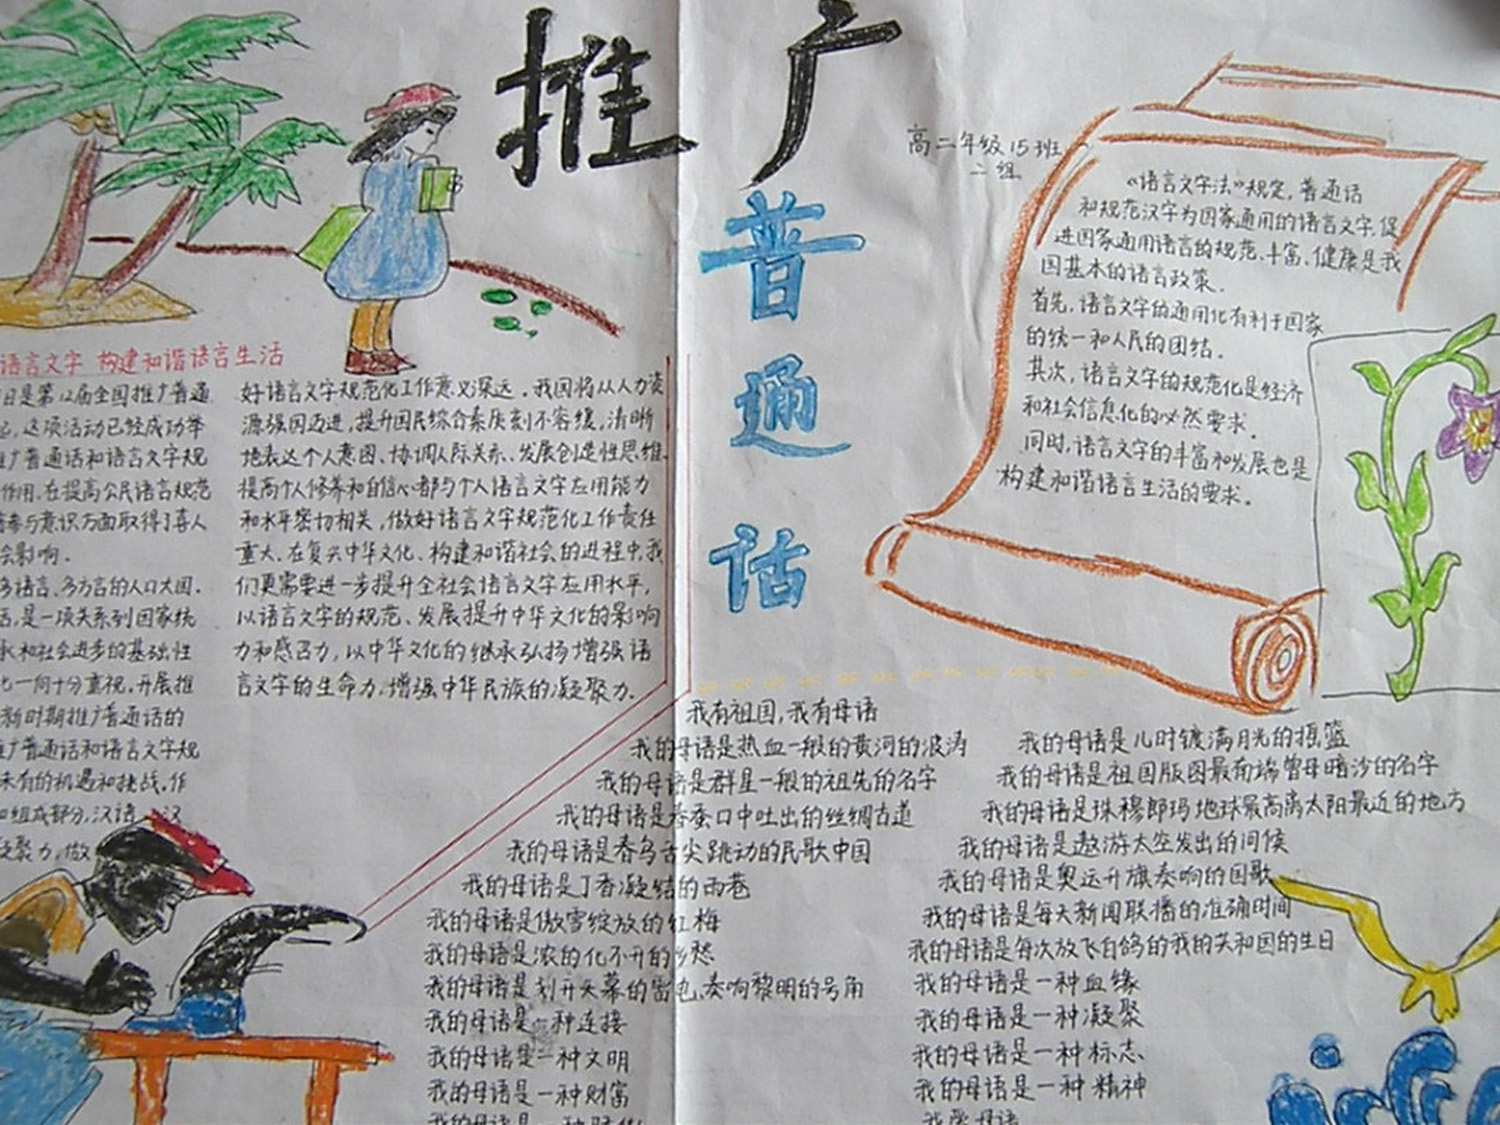 推广
普通话
高二年级15班
二组
《语言文字法》规定，普通话
和规范汉字为国家通用的语言文字，促
进国家通用语言的规范、丰富、健康是我
国基本的语言政策．
首先，语言文字的通用化有利于国家
的统一和人民的团结．
其次，语言文字的规范化是经济
和社会信息化的必然要求．
同时，语言文字的丰富和发展也是
构建和谐语言生活的要求．
语言文字 构建和谐语言生活
日是第12届全国推广普通
这项活动已经成功举
广普通话和语言文字规
作用．在提高公民语言规范
参与意识方面取得了喜人
会影响．
多语言、多方言的人口大国．
是一项关系到国家统
承和社会进步的基础性
一向十分重视．开展推
新时期推广普通话的
广普通话和语言文字规
未有的机遇和挑战．作
组成部分，汉语、汉
聚力，做
好语言文字规范化工作意义深远．我国将从人力资
源强国迈进，提升国民综合素质刻不容缓，清晰
地表达个人意图、协调人际关系、发展创造性思维、
提高个人修养和自信心都与个人语言文字应用能力
和水平密切相关，做好语言文字规范化工作责任
重大．在复兴中华文化、构建和谐社会的进程中，我
们更需要进一步提升全社会语言文字应用水平，
以语言文字的规范、发展提升中华文化的影响
力和感召力，以中华文化的继承弘扬增强语
言文字的生命力，增强中华民族的凝聚力．
我有祖国，我有母语
我的母语是热血一般的黄河的波涛
我的母语是群星一般的祖先的名字
我的母语是春蚕口中吐出的丝绸古道
我的母语是春鸟舌尖跳动的民歌中国
我的母语是丁香凝结的雨巷
我的母语是傲雪绽放的红梅
我的母语是浓的化不开的乡愁
我的母语是划开天幕的雷电、奏响黎明的号角
我的母语是一种连接
我的母语是一种文明
我的母语是一种财富
我的母语是一种
我的母语是儿时镀满月光的摇篮
我的母语是祖国版图最南端曾母暗沙的名字
我的母语是珠穆郎玛地球最高离太阳最近的地方
我的母语是遨游太空发出的问候
我的母语是奥运升旗奏响的国歌
我的母语是每天新闻联播的准确时间
我的母语是每次放飞白鸽的我的共和国的生日
我的母语是一种血缘
我的母语是一种凝聚
我的母语是一种标志
我的母语是一种精神
我爱母语